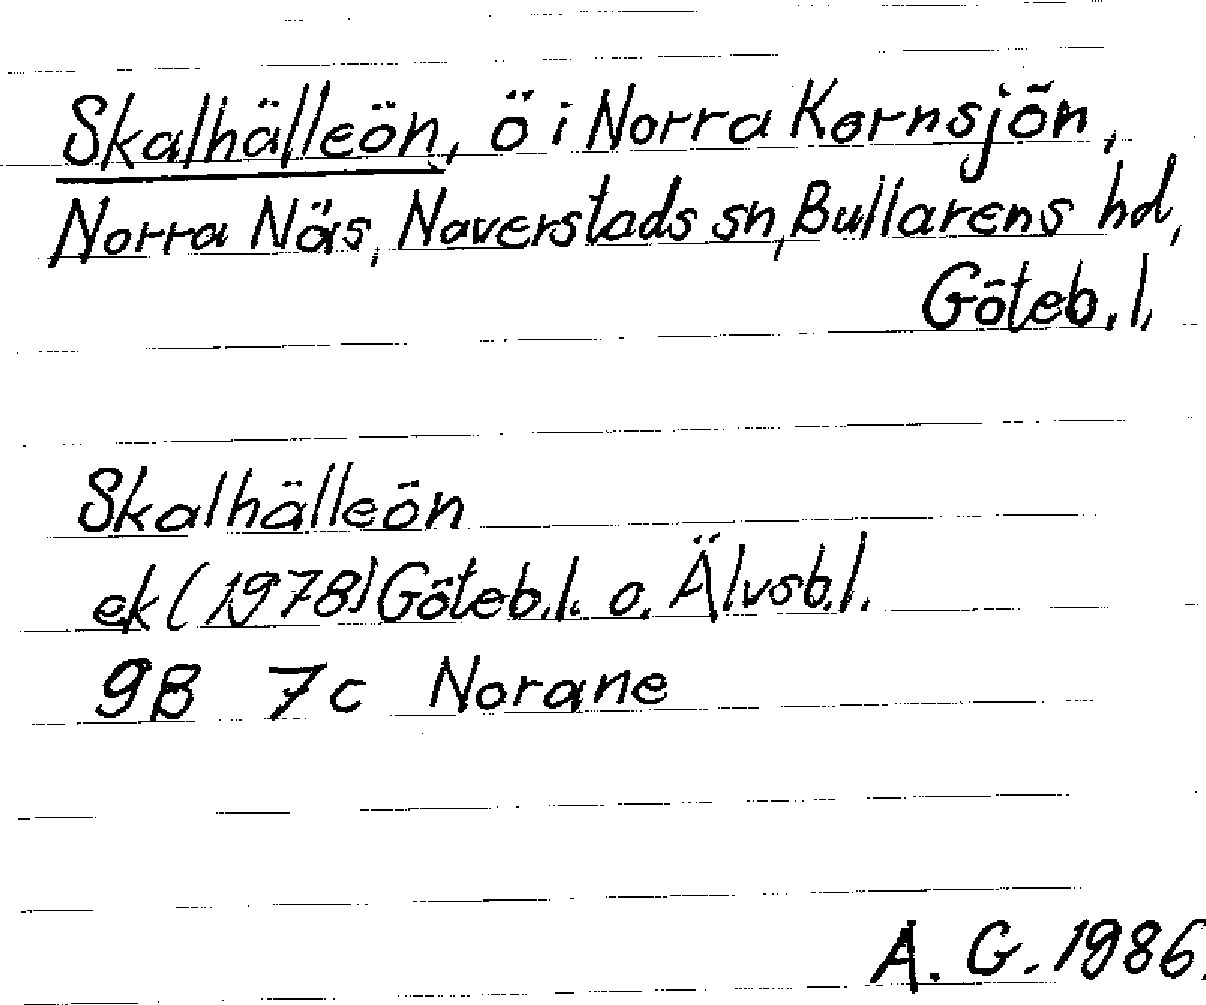 Skalhälleön, ö i Norra Kornsjön,
Norra Näs, Naverstads sn, Bullarens hd,
Göteb. l.
Skalhälleön
ek (1978) Göteb.l. o. Älvsb.l.
9B 7c Norane
A. G. 1986.